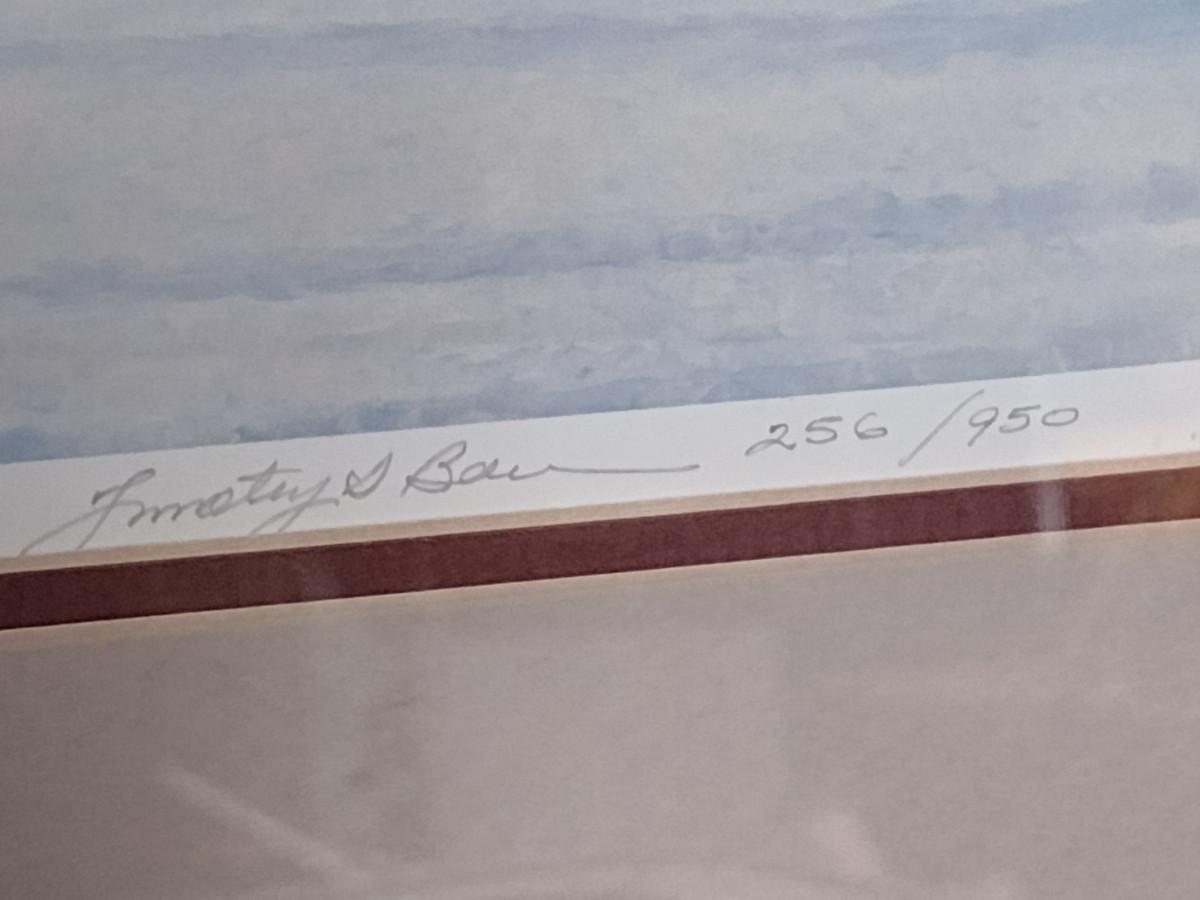 Timothy S 256/950